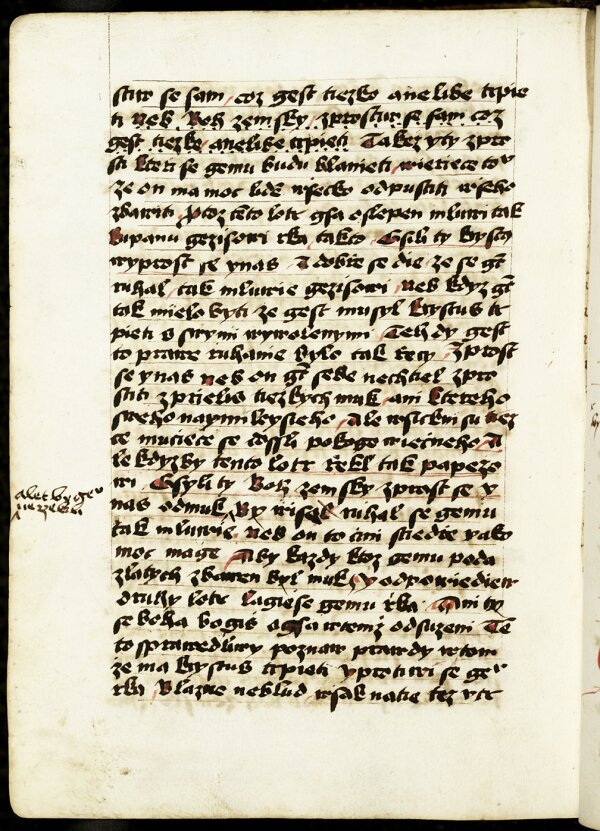 stur se sam coz gest tiezko a nelibe trpie
ti neb Boh zemsky zprostiur se sam coz
gest tiezke a nelibe trpieti Takez y ty zpro
sti kteri se gemu budu klanieti wieriece to
ze on ma moc lide wsecko odpustiti wseho
zbawiti Protoz tento lotr gsa oslepen mluwi tak
ku panu gezisowi rka takto Gsi li ty krystus
wyprost se y nas A dobre se die ze se gt
ruhal tak mluwie gezisowi neb kdyz gt
tak mielo byti ze gest musyl krystus tr
pieti s swymi wywolenymi Tehdy gest
to prawe ruhanie bylo tak rzecy Zprost
se y nas neb on gt sebe nechtiel zpro
stiti z prieliss tiezkych muk ani ktereho
sweho naymileysieho Ale wsickni su wez
ce muciece se dossli pokoge wiecneho A
le kdyzby tento lotr rekl tak papeze
wi Gsy li ty Boh zemsky zprost se y
nas od muk By wsak ruhal se gemu
tak mluwie neb on to cini sciedrie yako
moc mage Aby kazdy ktoz gemu poda
zlatych zbawen byl muk y odpowiediew
druhy lotr lagiese gemu rka Ani ty
se boha bogis a gsa w temz odsuzeni Te
to sprawedliwy poznaw prawdy w tom
ze ma krystus trpieti y protiwi se ge
rka Blazne neblud wsak na tie tez y te
ale t by ge